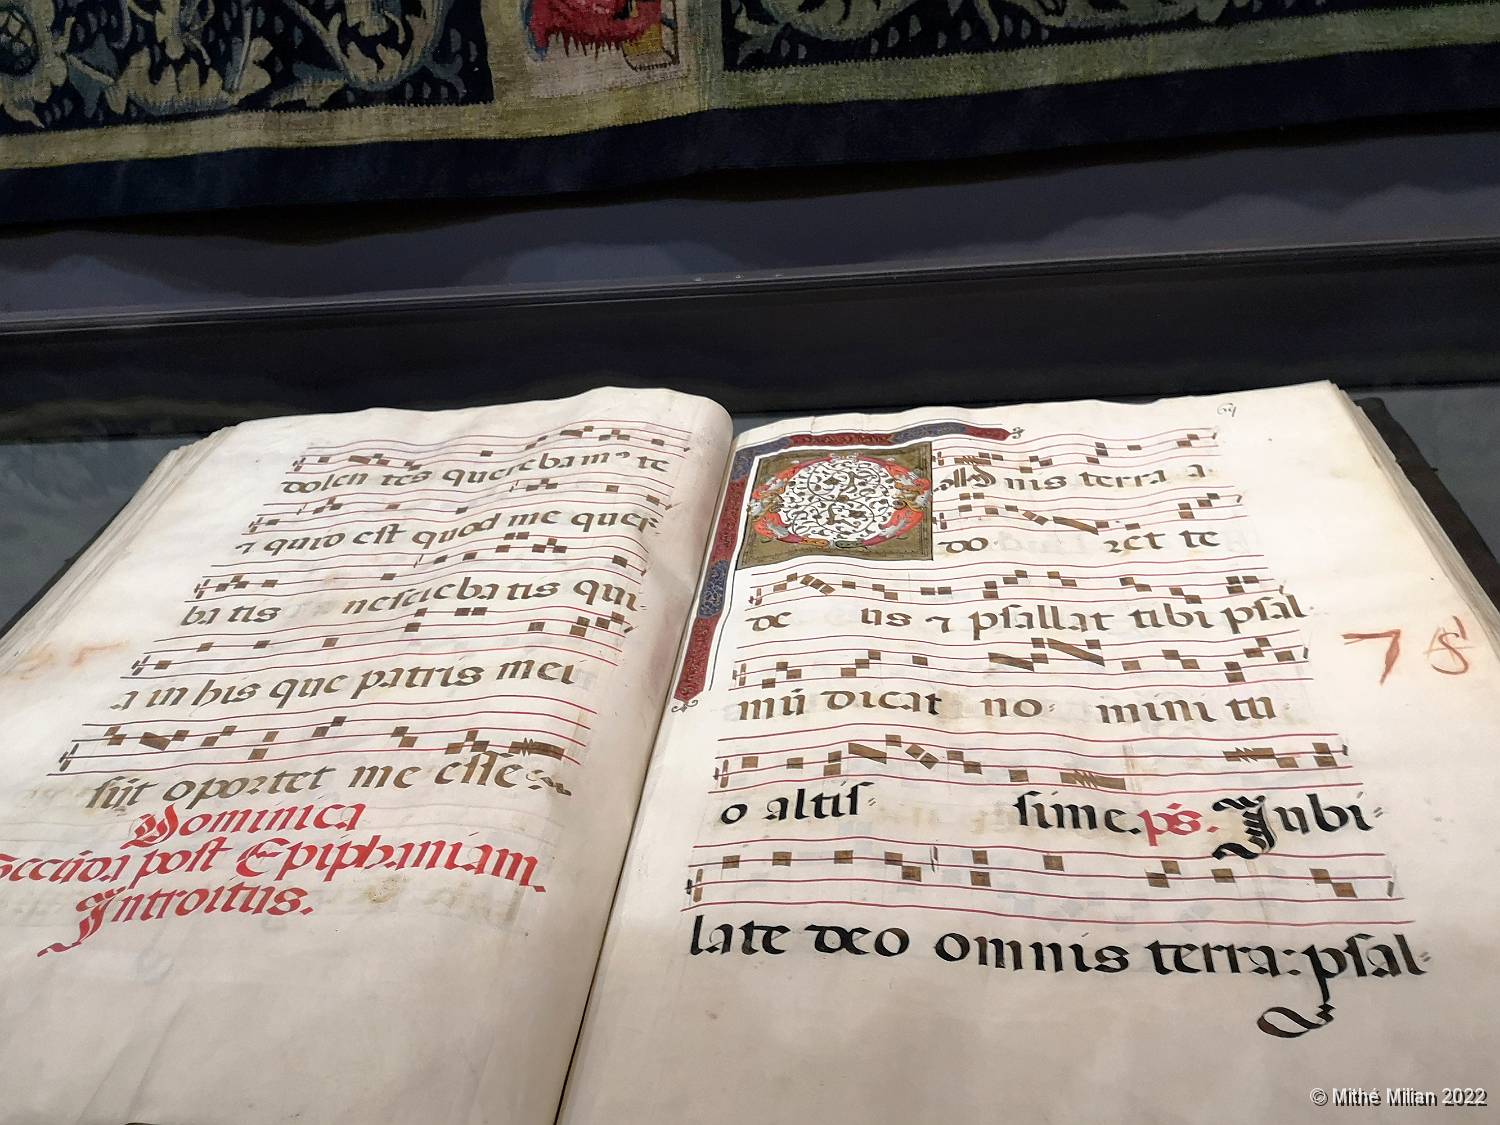 dolen tes querebamꝰ te
⁊ quid est quod me quer-
ba tis nesciebatis qui-
a in his que patris mei
sūt oportet me esse.
Dominica
Secūda post Epiphaniam.
Introitus.
69
Omnis terra a-
do ret te
de us ⁊ psallat tibi psal-
mū dicat no- mini tu-
o altis- sime. ps. Jubi-
late deo omnis terra: psal-
78
© Mithé Milian 2022